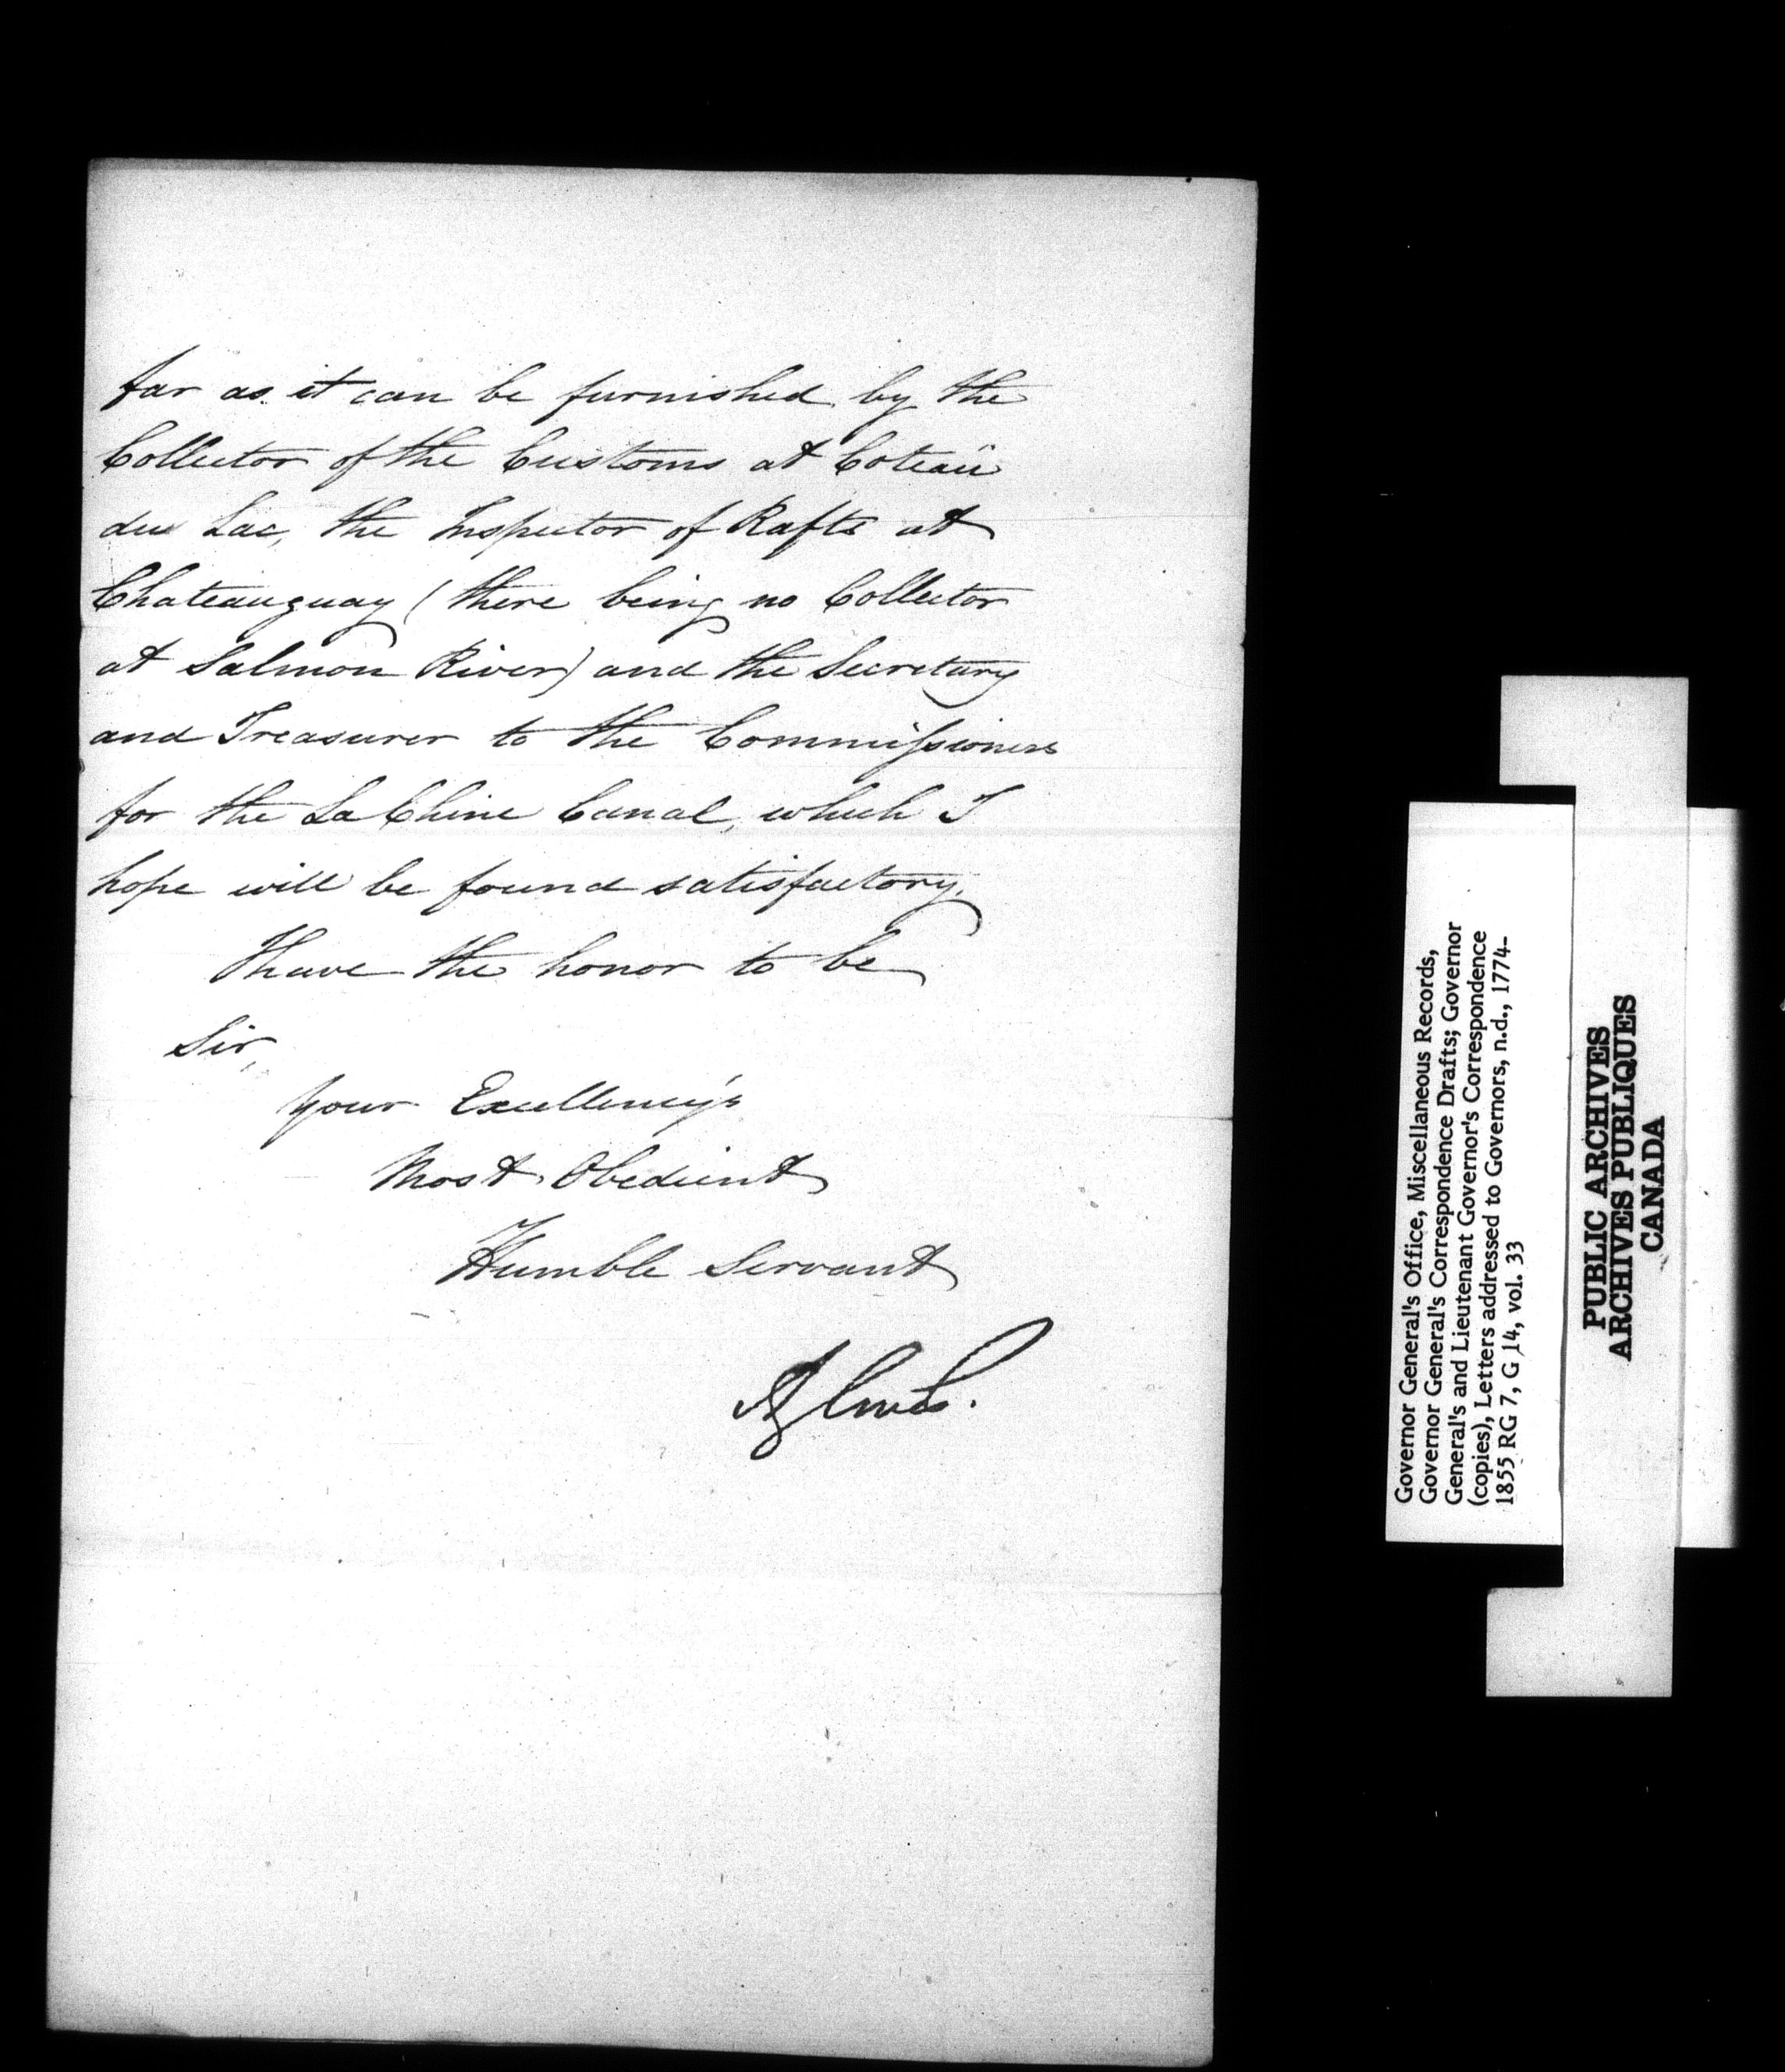 far as it can be furnished by the
Collector of the Customs at Coteau
du Lac, the Inspector of Rafts at
Chateauguay (there being no Collector
at Salmon River) and the Secretary
and Treasurer to the Commissioners
for the La Chine Canal, which I
hope will be found satisfactory.
I have the honor to be
Sir,
Your Excellency's
Most Obedient
Humble Servant
Aylmer.
Governor General's Office, Miscellaneous Records,
Governor General's Correspondence Drafts; Governor
General's and Lieutenant Governor's Correspondence
(copies), Letters addressed to Governors, n.d., 1774-
1855 RG 7, G 14, vol. 33
PUBLIC ARCHIVES
ARCHIVES PUBLIQUES
CANADA